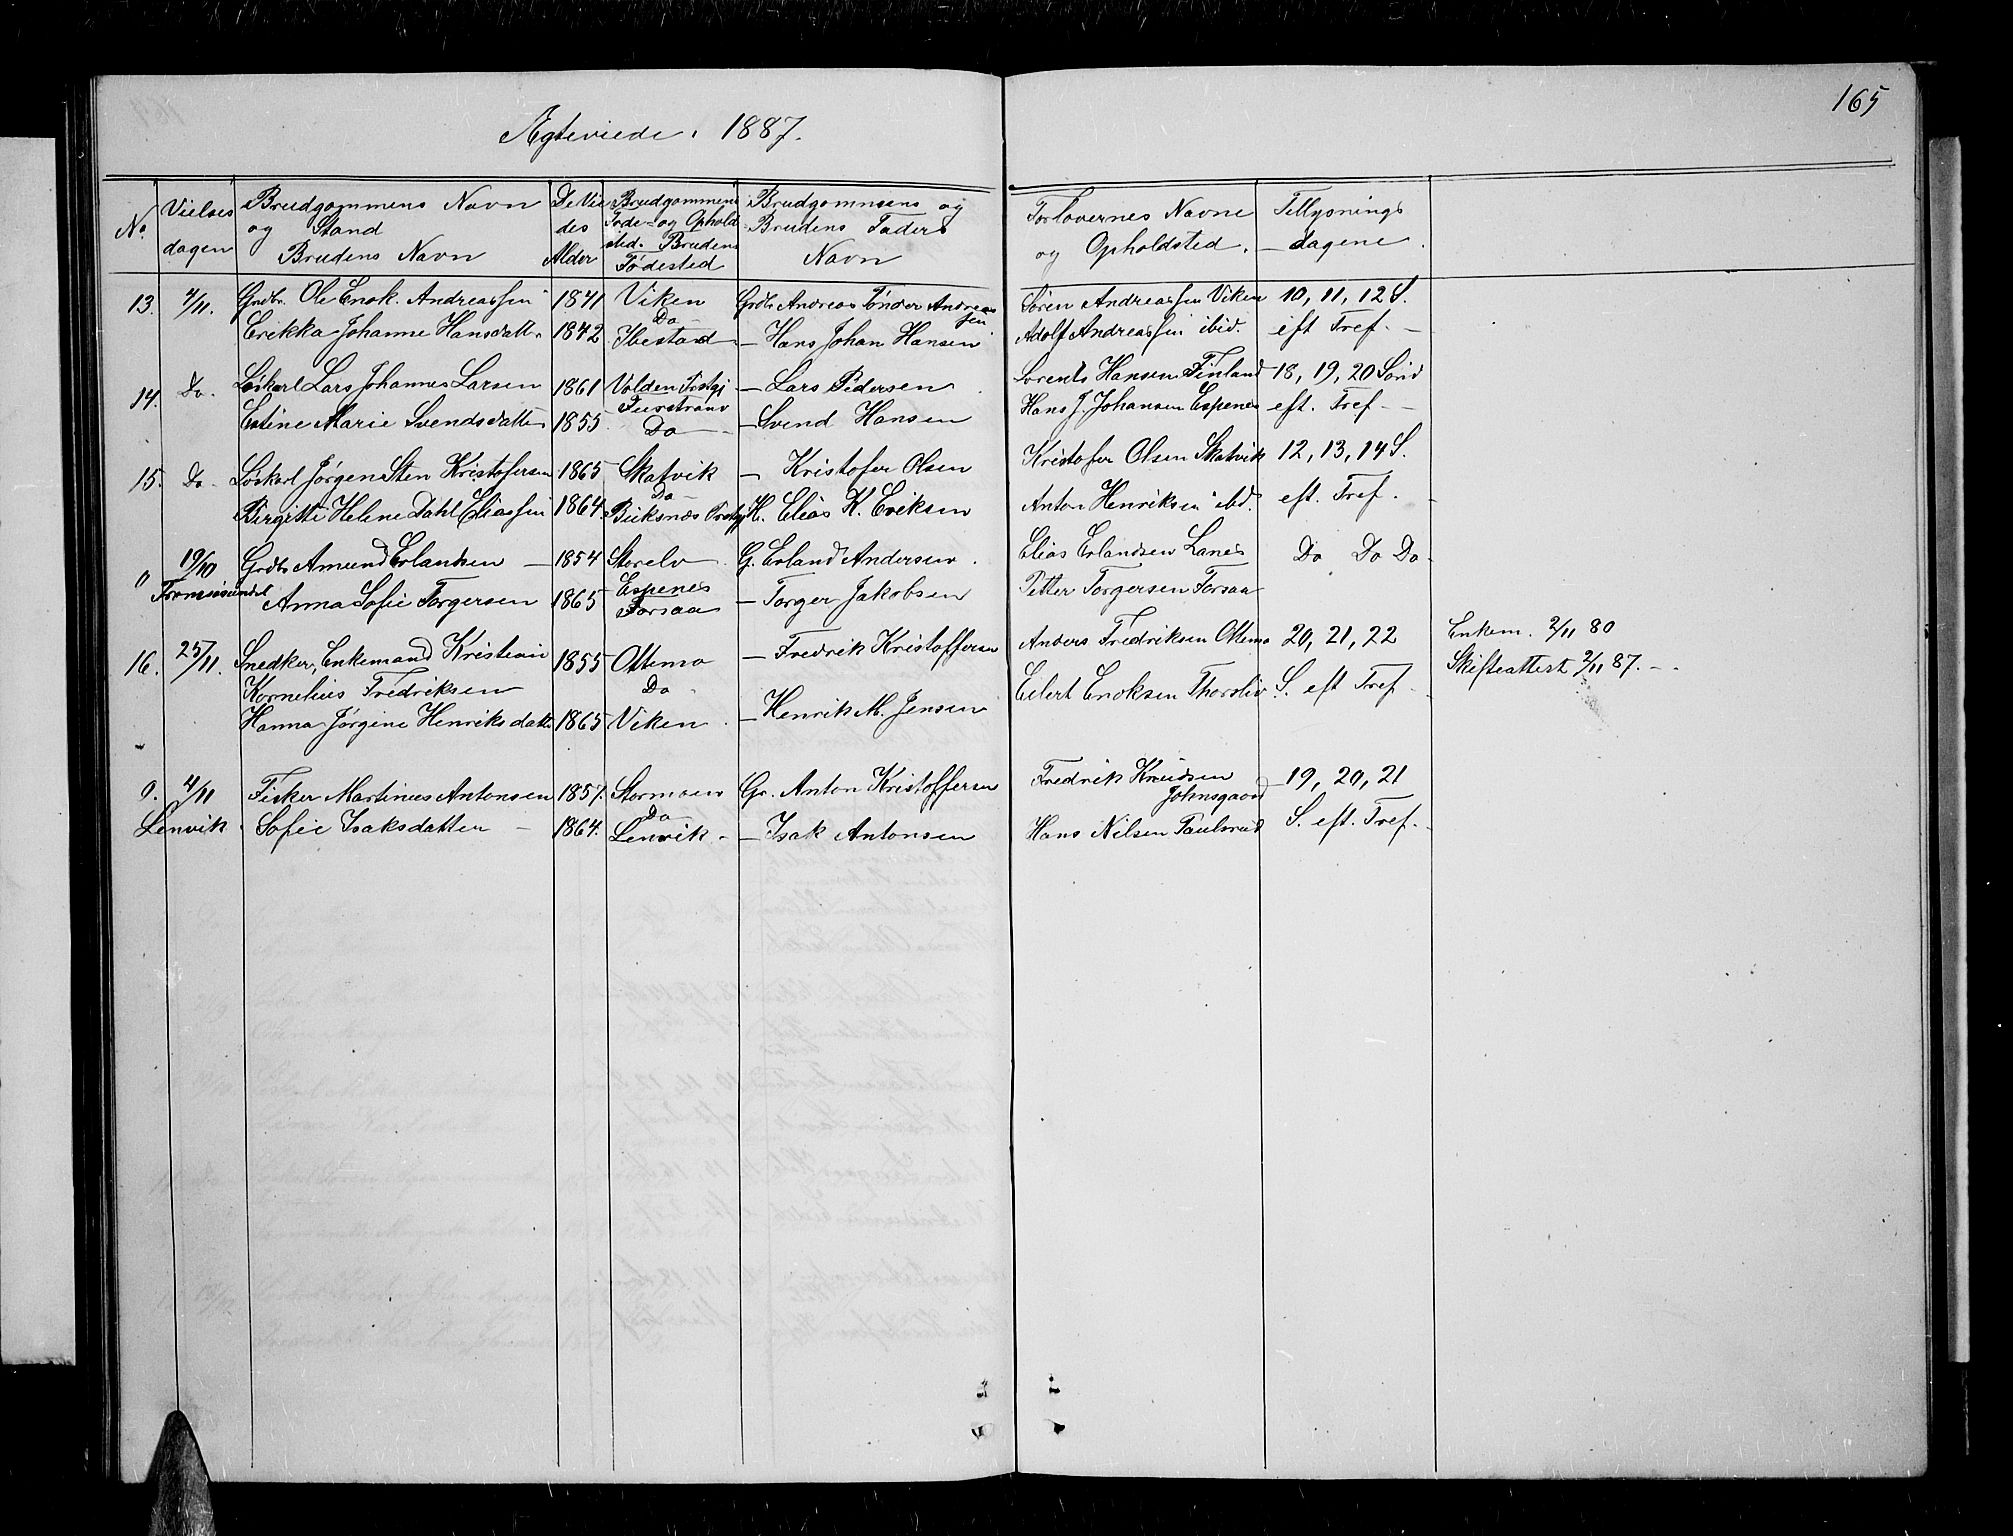 165
Ægteviede. 1887.
No. Vielses dagen Brudgommens Navn og Stand Brudens Navn De Vie des Alder Brudgommens Føde- og Ophold sted. Brudens Fødested Brudgommens og Brudens Faders Navn Forlovernes Navne og Opholdsted. Tillysnings dagene.
13. 4/11. Grdbr. Ole Enok. Andreassen 1841 Viken Grdb. Andreas Tønder Andreas sen Søren Andreassen Viken 10, 11, 12 S.
Erikka Johanne Hansdatt. 1842 Do Ibestad — Hans Johan Hansen Adolf Andreassen ibid. eft Tref. —
14. Do. Løskarl Lars Johannes Larsen 1861 Volden — Lars Pedersen Lorents Hansen Finland 18, 19, 20 Sønd
Estine Marie Svendsdatter 1855 Do — Svend Hansen Hans J. Johansen Espenes eft. Tref —
15. Do. Løskarl Jørgen Sten Kristofersen 1865 Skatvik — Kristofer Olsen Kristofer Olsen Skatvik 12, 13, 14 S.
Birgitte Helene Dahl Eliassen 1864. Do Buksnæs Prstgj H. Elias K. Eriksen Anton Henriksen ibd. eft. Tref. —
" 19/10 Grdbr Amund Erlantsen — 1854 Storelv G. Erland Andersen. Elias Erlandsen Lanes Do Do Do
Tromsøsundet Anna Sofie Torgersen 1865 Espenes Forsaa — Torger Jakobsen Petter Torgersen Forsaa
16. 25/11. Snedker, Enkemand Kristian 1855 Ottemo — Fredrik Kristoffersen Anders Fredriksen Ottemo 20, 21, 22 Enkem. 2/11 80
Kornelius Fredriksen Do Eilert Enoksen Thorsliv S. eft Tref — Skifteattest 2/11 87. —
Hanna Jørgine Henriksdatt. 1865 Viken. — Henrik M. Jensen
9. 4/11 Fisker Martinus Antonsen 1857. Stormoen Gr. Anton Kristoffersen Fredrik Knudsen Johnsgaard 19, 20, 21
Lenvik. Sofie Isaksdatter — 1864. Do Lenvik — Isak Antonsen Hans Nilsen S. eft. Tref. —